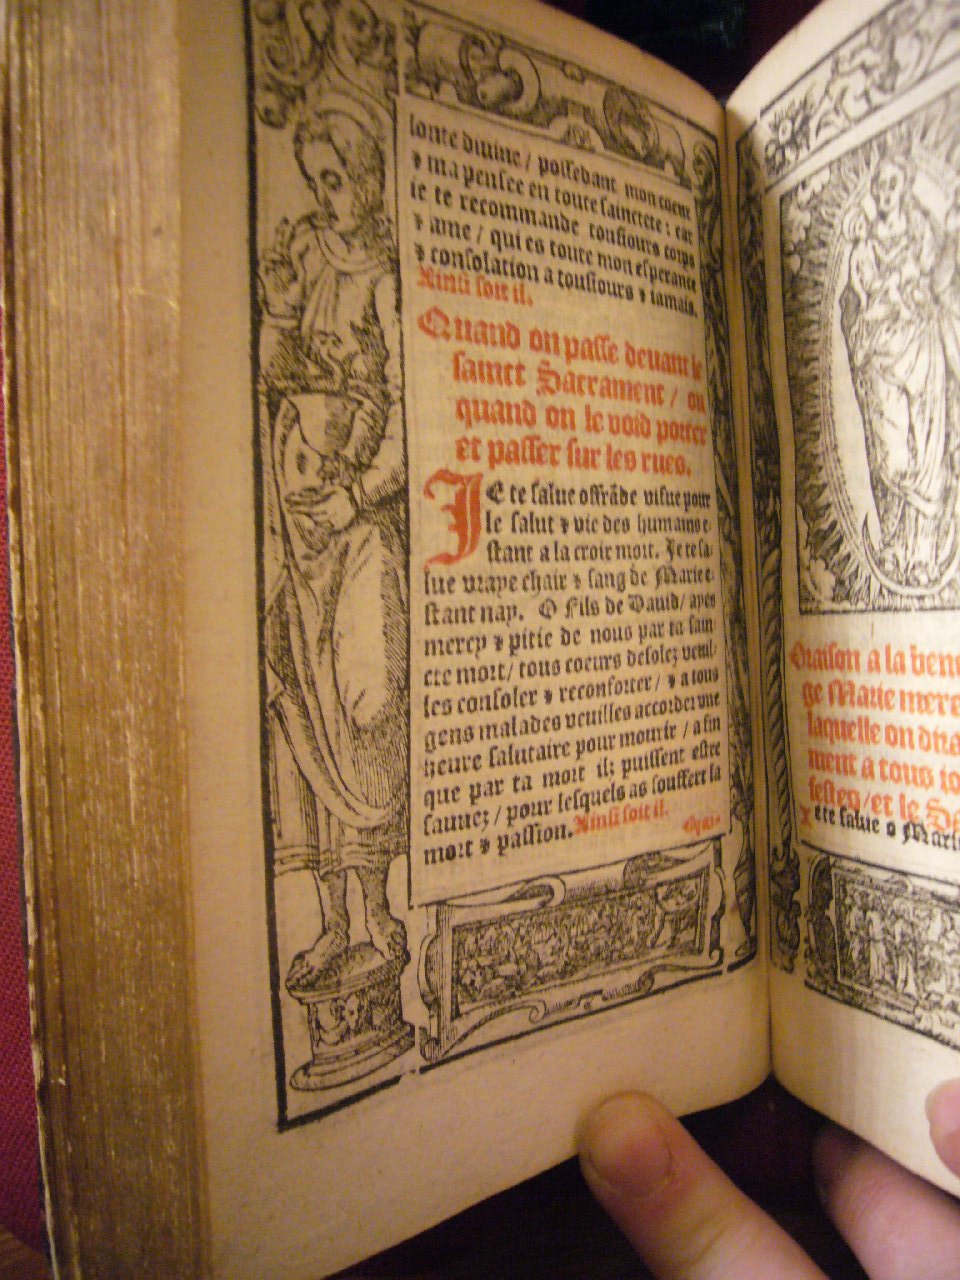 lonte divine / possedant mon coeur
⁊ ma pensee en toute sainctete : car
ie te recommande tousiours corps
⁊ ame / qui es toute mon esperance
⁊ consolation a tousiours ⁊ iamais.
Ainsi soit il.
Quand on passe devant le
sainct Sacrament / ou
quand on le void porter
et passer sur les rues.
JE te salue offrãde visue pour
le salut ⁊ vie des humains e-
stant a la croix mort. Je te sa-
lue vraye chair ⁊ sang de Marie e-
stant nay. O Fils de David / ayes
mercy ⁊ pitie de nous par ta sain-
cte mort / tous coeurs desolez veuil-
les consoler ⁊ reconforter / ⁊ a tous
gens malades veuilles accorder une
heure salutaire pour mourir / afin
que par ta mort ilz puissent estre
sauvez / pour lesquels as souffert la
mort ⁊ passion. Ainsi soit il.
Orai-
Oraison a la beno
ge Marie mere
laquelle on dira
ment a tous io
festes / et le
te salue o Marie